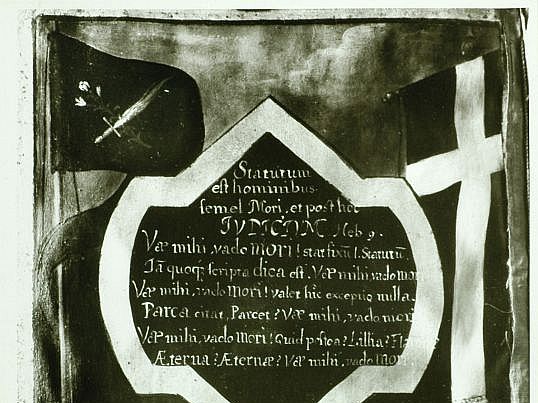 Statutum
est hominibus
semel Mori, et post hoc
IVDICIVM. Heb 9.
Væ mihi, vado MORI! stat fixũ! Statutũ.
Iã quoqʒ scripta dica est. Væ mihi, vado mori
Væ mihi, vado mori! valet hîc exceptio nulla.
Parca citat, Parcet? Væ mihi, vado mori
Væ mihi, vado mori! Quid Lilia?
Æterna? Æternæ? Væ mihi, vado mori.